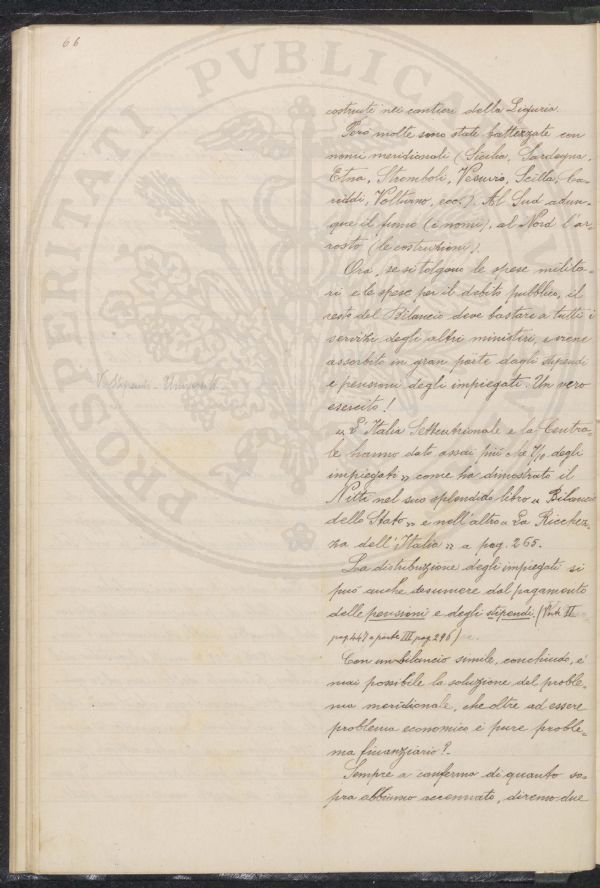 66
costruite nei cantieri della Liguria.
Però molte sono state battezzate con
nomi meridionali (Sicilia, Sardegna,
Etna, Stromboli, Vesuvio, Scilla, Ca-
riddi, Volturno, ecc.). Al Sud adun-
que il fumo (i nomi), al Nord l'ar-
rosto (le costruzioni).
Ora, se si tolgono le spese milita-
ri e le spese per il debito pubblico, il
resto del Bilancio deve bastare a tutti i
servizi degli altri ministeri, e viene
assorbito in gran parte dagli stipendi
e pensioni degli impiegati. Un vero
esercito!
V. Stipendi - Università
« L'Italia Settentrionale e la Centra-
le hanno dato assai più che 7/10 degli
impiegati » come ha dimostrato il
Nitti nel suo splendido libro « Bilancio
dello Stato » e nell'altro « La Ricchez-
za dell'Italia » a pag. 265.
La distribuzione degli impiegati si
può anche desumere dal pagamento
delle pensioni e degli stipendi. (Parte II
pag. 447 e parte III pag. 296)
Con un bilancio simile, conchiudo, è
mai possibile la soluzione del proble-
ma meridionale, che oltre ad essere
problema economico è pure proble-
ma finanziario?
Sempre a conferma di quanto so-
pra abbiamo accennato, diremo due
PROSPERITATI PVBLICAE